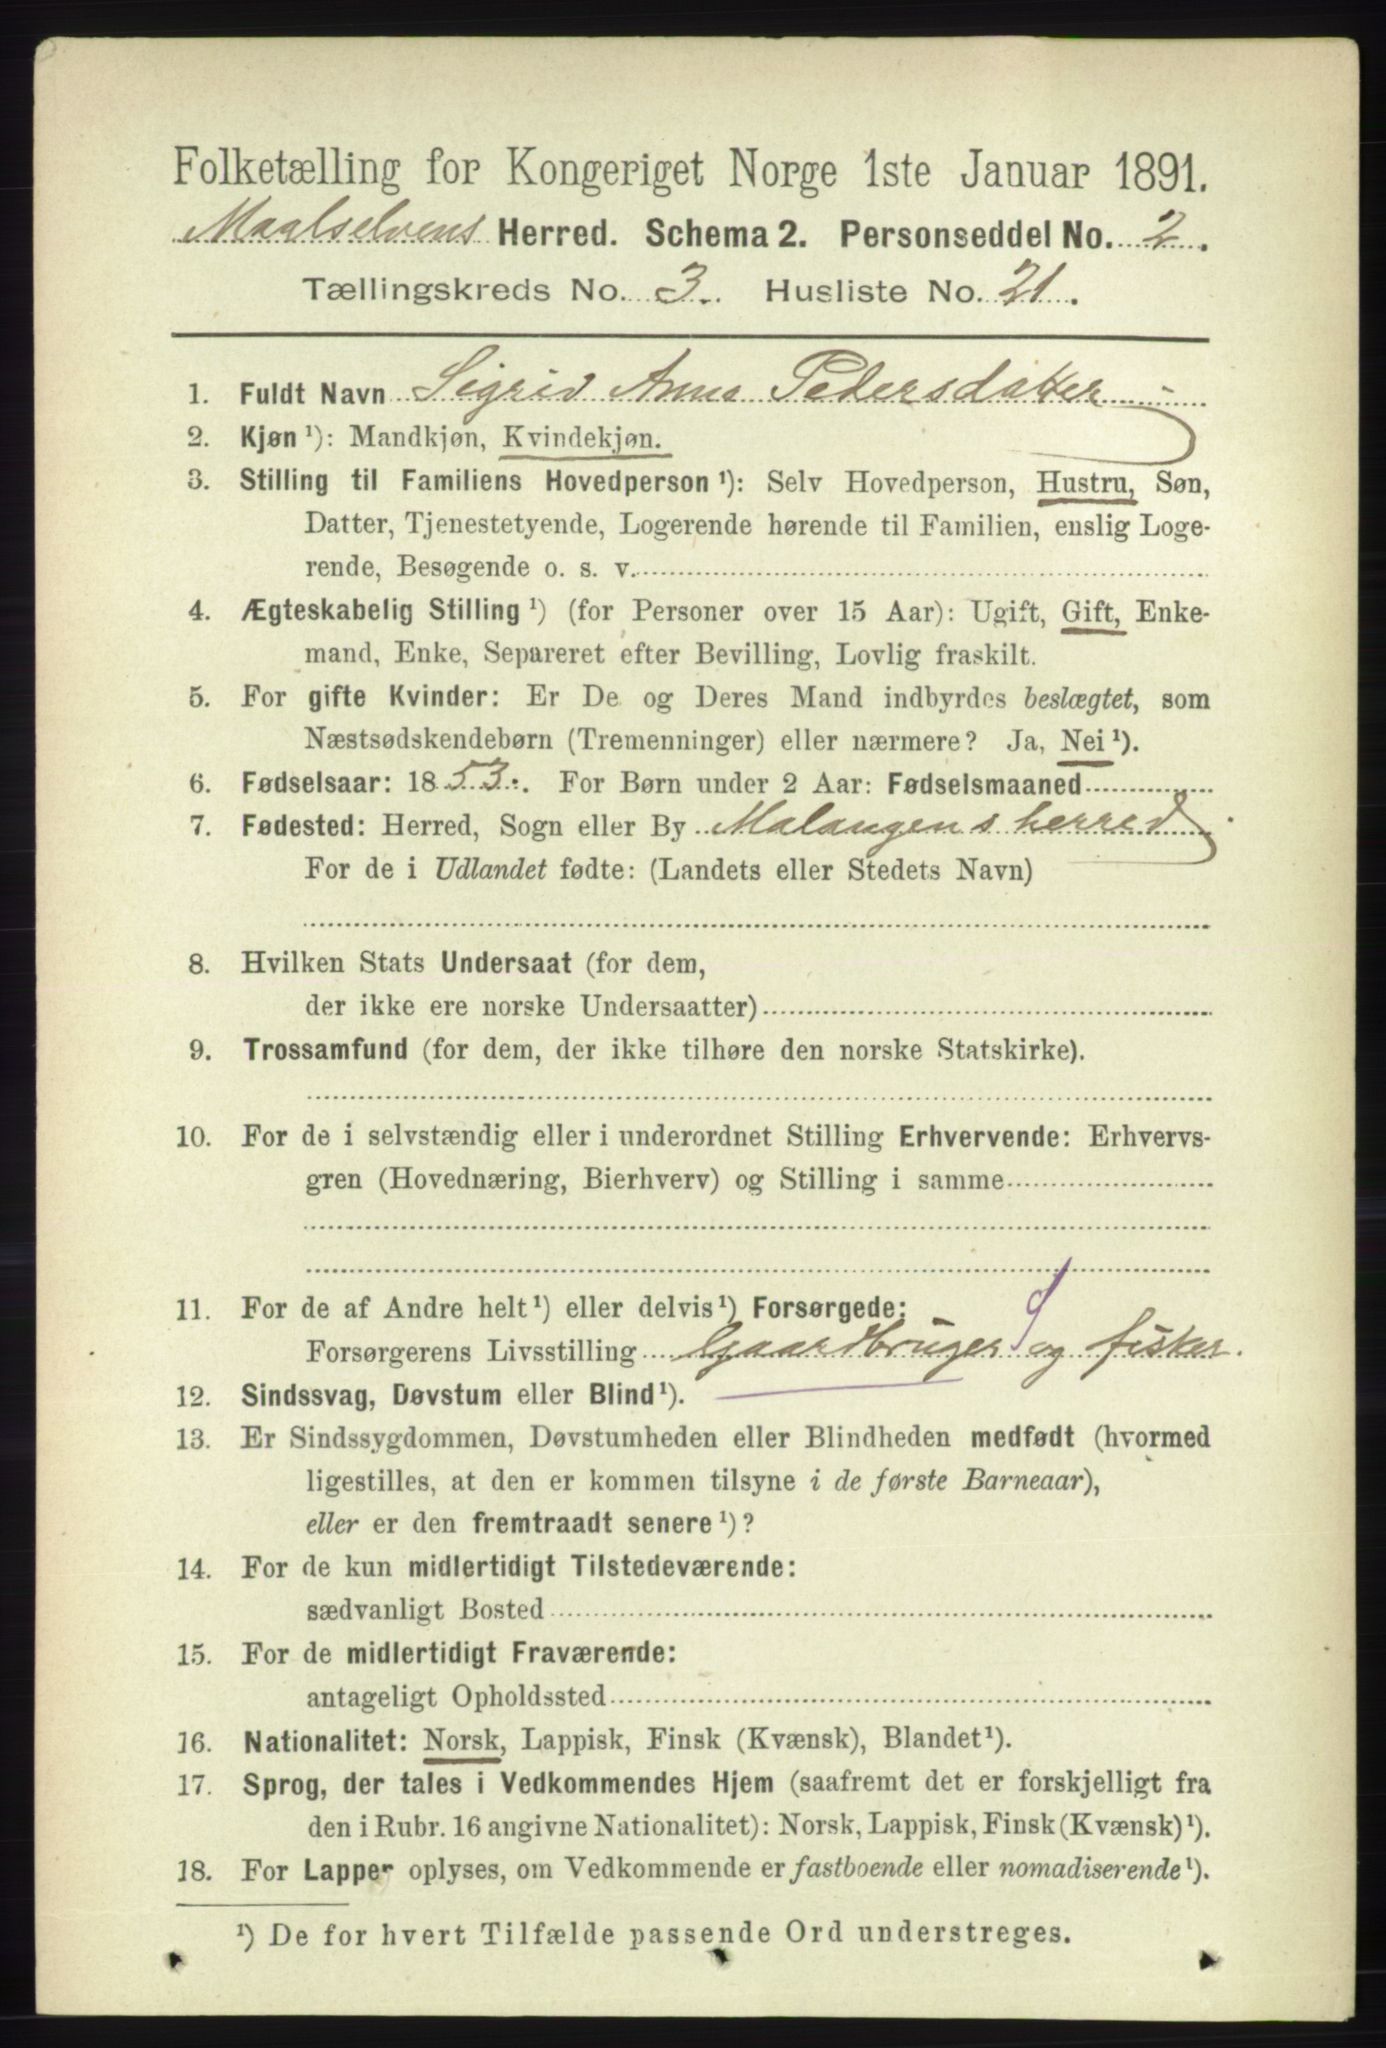 Folketælling for Kongeriget Norge 1ste Januar 1891.
Maalselvens Herred. Schema 2. Personseddel No. 2.
Tællingskreds No. 3. Husliste No. 21.
1. Fuldt Navn Sigrid Anna Pedersdatter
2. Kjøn ¹): Mandkjøn, Kvindekjøn.
3. Stilling til Familiens Hovedperson ¹): Selv Hovedperson, Hustru, Søn,
Datter, Tjenestetyende, Logerende hørende til Familien, enslig Loge-
rende, Besøgende o. s. v.
4. Ægteskabelig Stilling ¹) (for Personer over 15 Aar): Ugift, Gift, Enke-
mand, Enke, Separeret efter Bevilling, Lovlig fraskilt.
5. For gifte Kvinder: Er De og Deres Mand indbyrdes beslægtet, som
Næstsødskendebørn (Tremenninger) eller nærmere? Ja, Nei ¹).
6. Fødselsaar: 1853. For Børn under 2 Aar: Fødselsmaaned
7. Fødested: Herred, Sogn eller By Malangens herred
For de i Udlandet fødte: (Landets eller Stedets Navn)
8. Hvilken Stats Undersaat (for dem,
der ikke ere norske Undersaatter)
9. Trossamfund (for dem, der ikke tilhøre den norske Statskirke).
10. For de i selvstændig eller i underordnet Stilling Erhvervende: Erhvervs-
gren (Hovednæring, Bierhverv) og Stilling i samme
11. For de af Andre helt ¹) eller delvis ¹) Forsørgede:
Forsørgerens Livsstilling Gaardbruger og fisker.
12. Sindssvag, Døvstum eller Blind ¹).
13. Er Sindssygdommen, Døvstumheden eller Blindheden medfødt (hvormed
ligestilles, at den er kommen tilsyne i de første Barneaar),
eller er den fremtraadt senere ¹)?
14. For de kun midlertidigt Tilstedeværende:
sædvanligt Bosted
15. For de midlertidigt Fraværende:
antageligt Opholdssted
16. Nationalitet: Norsk, Lappisk, Finsk (Kvænsk), Blandet ¹).
17. Sprog, der tales i Vedkommendes Hjem (saafremt det er forskjelligt fra
den i Rubr. 16 angivne Nationalitet): Norsk, Lappisk, Finsk (Kvænsk) ¹).
18. For Lapper oplyses, om Vedkommende er fastboende eller nomadiserende ¹).
¹) De for hvert Tilfælde passende Ord understreges.